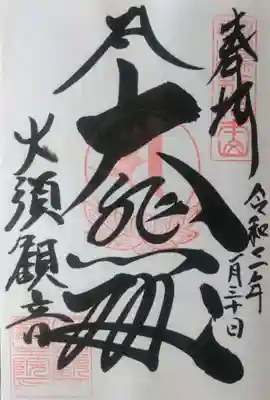 奉拝
令和二年
一月三十日
大悲殿
大須觀音